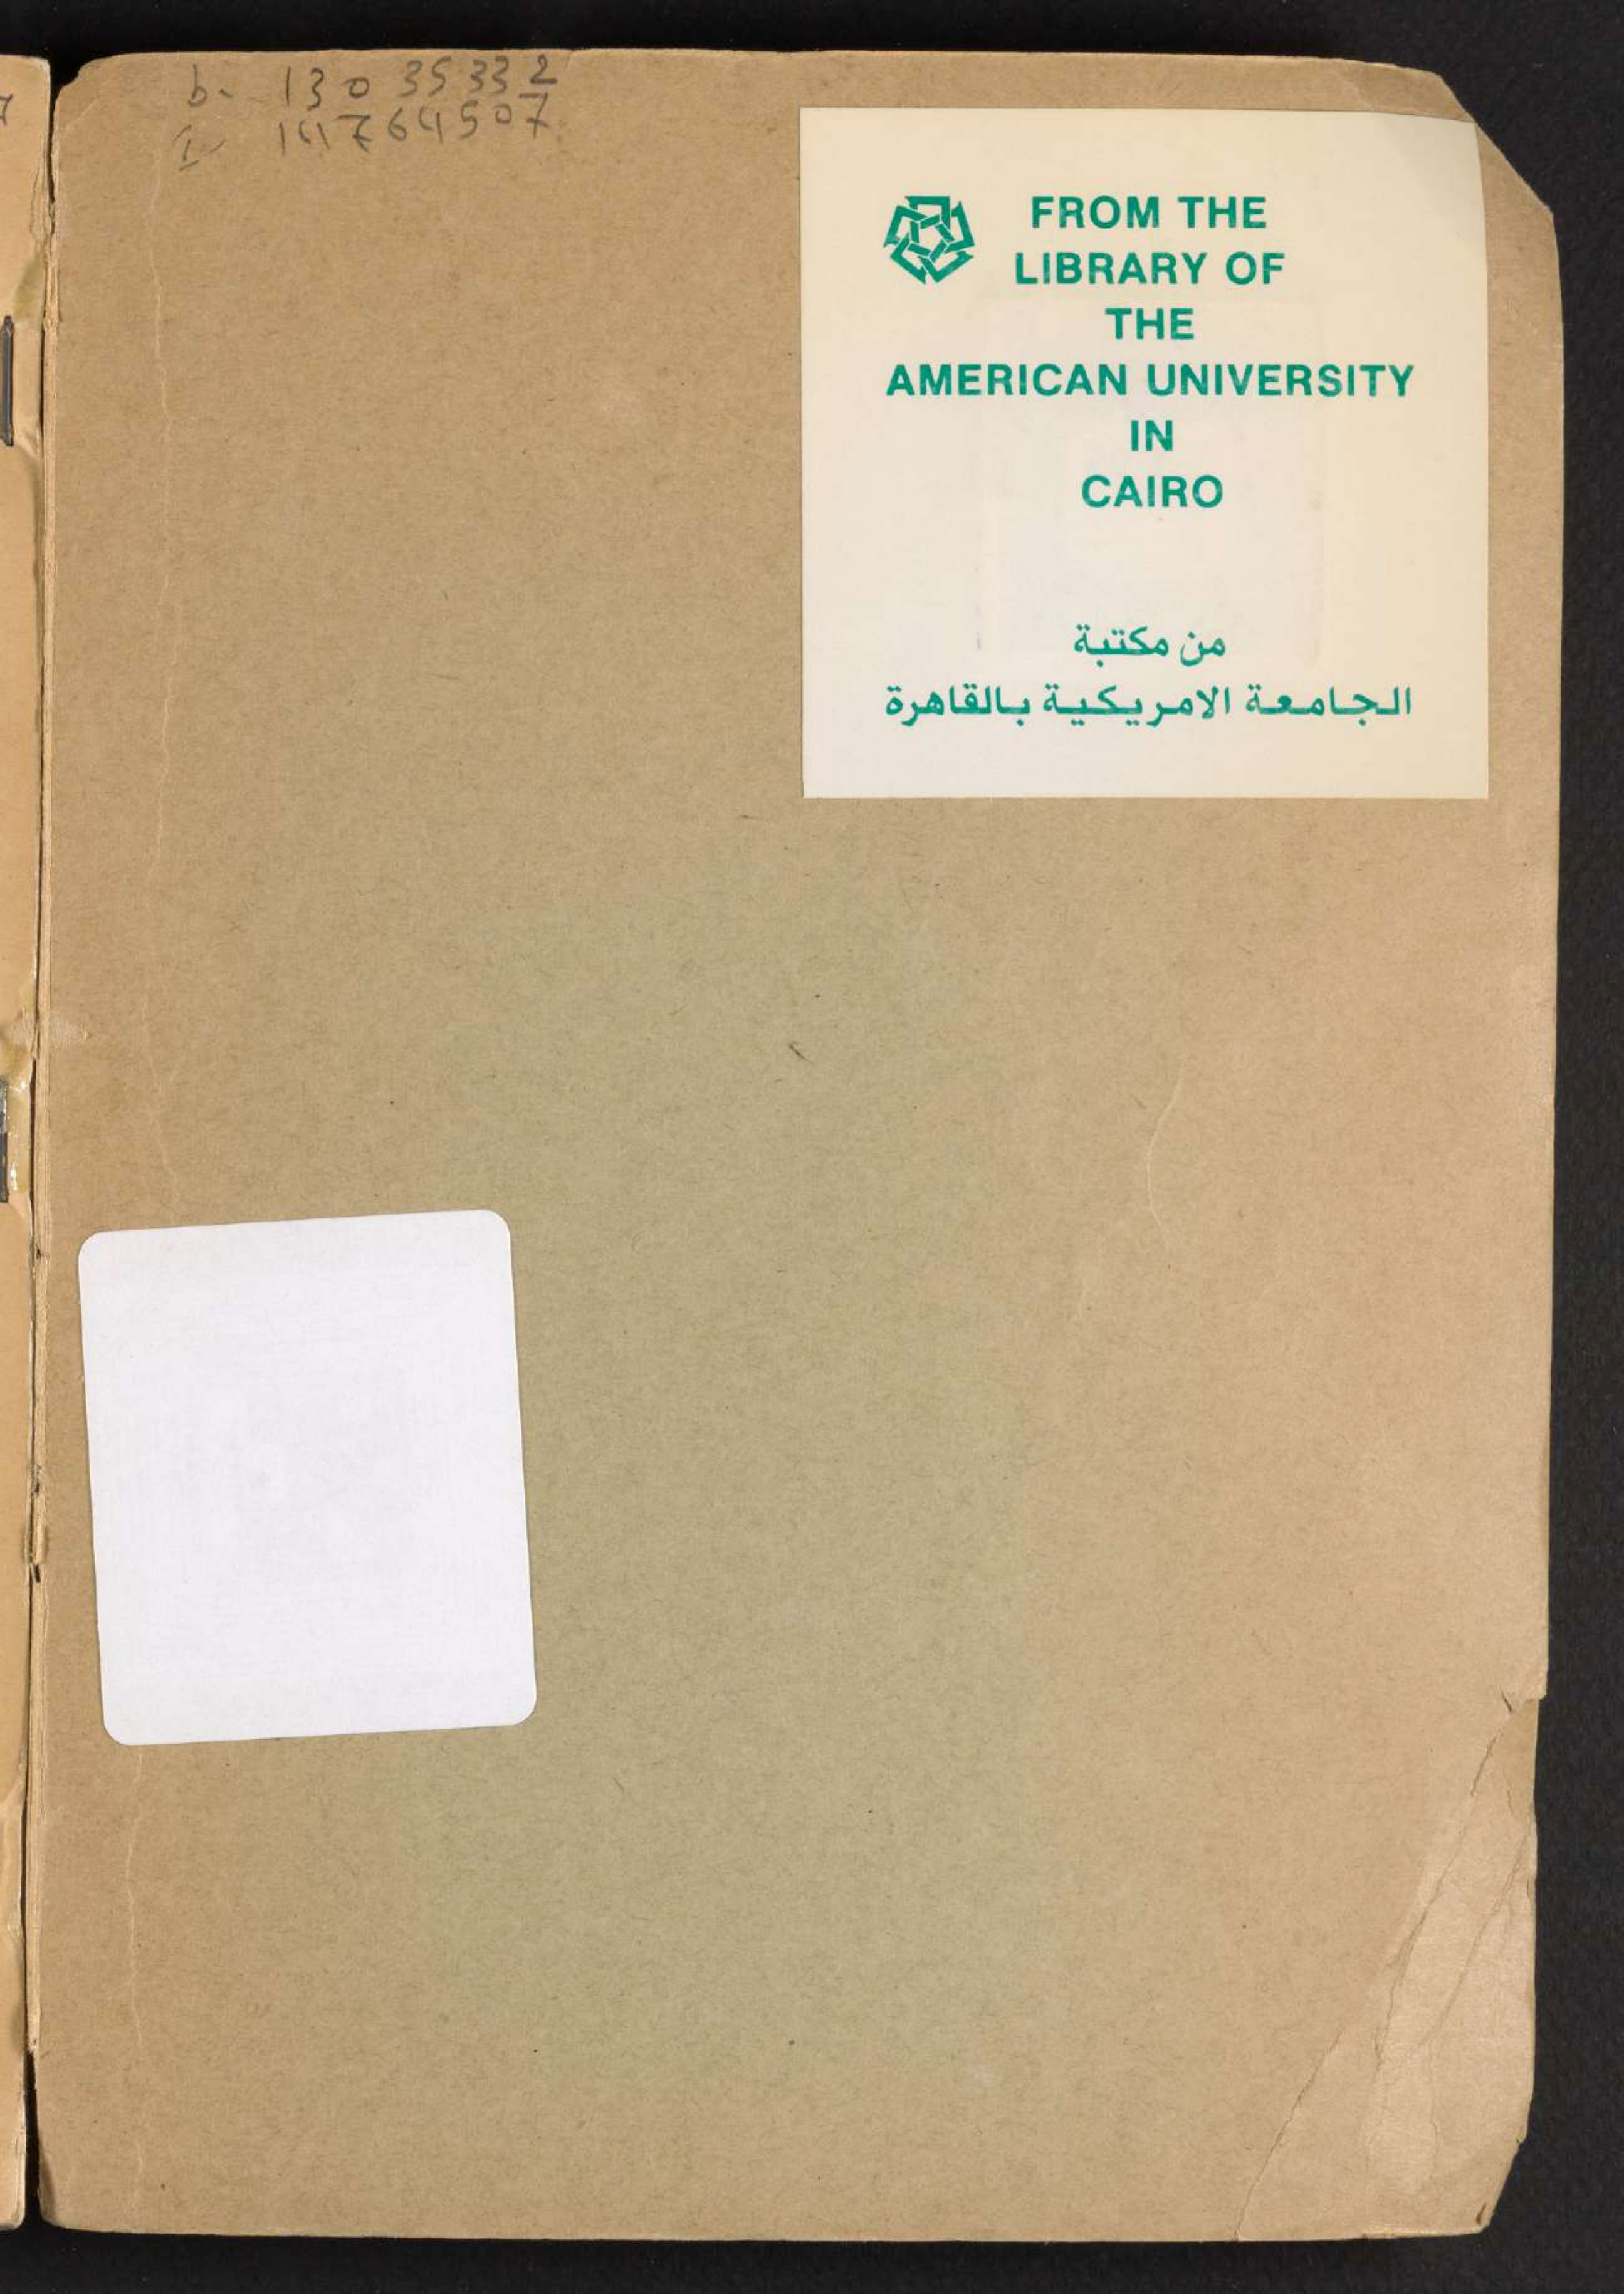 b- 130 35332
I- 141764507
FROM THE
LIBRARY OF
THE
AMERICAN UNIVERSITY
IN
CAIRO
من مكتبة
الجامعة الامريكية بالقاهرة